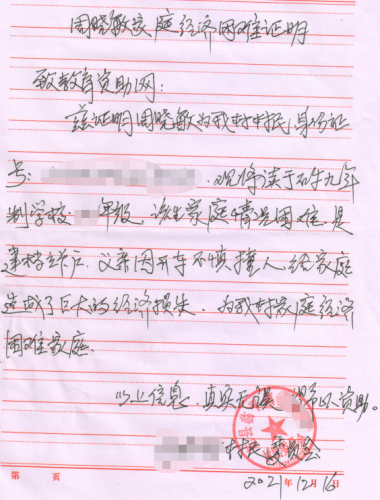 周晓敏家庭经济困难证明
致教育资助网:
兹证明周晓敏为我村村民,身份证
号: 现将读于 九年
制学校 年级,该生家庭情况困难,是
建档立户,父亲因开车不慎撞人,给家庭
造成了巨大的经济损失,为我村家庭经济
困难家庭.
以上信息,真实无误 予以资助。
村民委员会
第 页
2021年12月16日